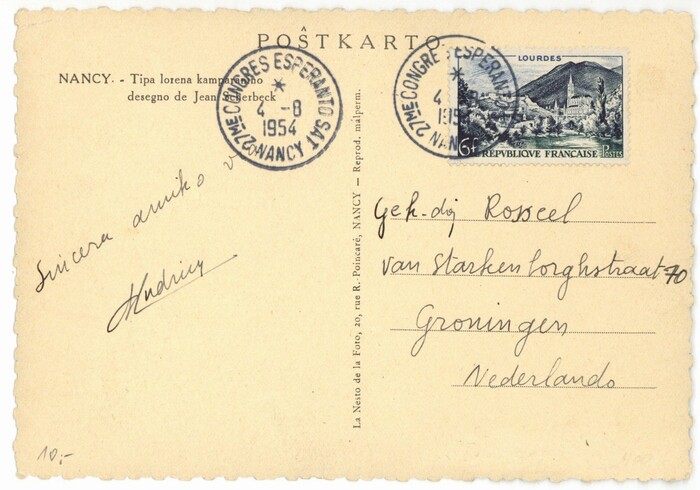 POŜTKARTO
NANCY. - Tipa lorena kamparanino
desegno de Jean Scherbeck
27ME CONGRES ESPERANTO SAT
4 -8
1954
NANCY
27ME CONGRES ESPERANTO
4 -8
195
NAN
LOURDES
6F RÉPUBLIQUE FRANÇAISE POSTES
La Nesto de la Foto, 20, rue R. Poincaré, NANCY — Reprod. malperm.
Sincera amiko
Gek-doj Rosseel
van Starkenborghstraat 70
Groningen
Nederlando
10,-